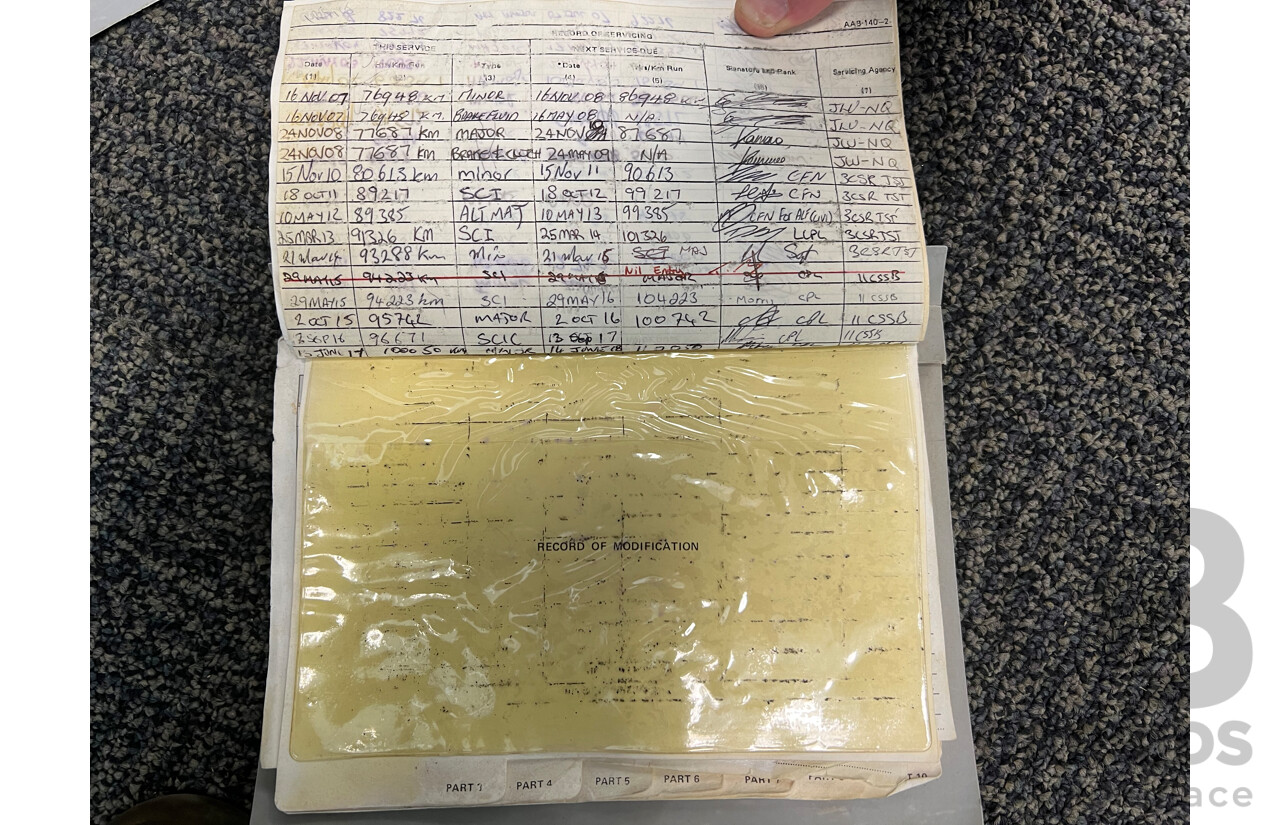 AAB-140-2
RECORD OF SERVICING
THIS SERVICE NEXT SERVICE DUE
Date Type *Date Km Run Signature and Rank Servicing Agency
(1) (3) (4) (5) (7)
16 NOV 07 76948 KM MINOR 16 NOV 08 86948 KM JLU-NQ
16 NOV 07 76948 KM. BRAKE FLUID 16 MAY 08 N/A JLU-NQ
24 NOV 08 77687 KM MAJOR 24 NOV 87687 JLU-NQ
24 NOV 08 77687 KM BRAKE & CLUTCH 24 MAY 09 N/A JLU-NQ
15 Nov 10 80613 km minor 15 Nov 11 90613 CFN 3CSR TST
18 OCT 11 89217 SCI 18 OCT 12 99217 CFN 3CSR TST
10 MAY 12 89385 10 MAY 13 99385 CFN 3CSR TST
25 MAR 13 91326 KM SCI 25 MAR 14 101326 LCPL 3CSR TST
21 Mar 14 93288 Km Min 21 Mar 15 SCI MAJ Sgt 3CSR TST
Nil Entry
29 MAY 15 94223 Km SCI MAJOR CPL 11 CSSB
29 MAY 15 94223 km SCI 29 MAY 16 104223 CPL 11 CSSB
2 OCT 15 95742 MAJOR 2 OCT 16 100742 CPL 11 CSSB
SEP 16 96671 SCIC 13 SEP 17 CPL 11 CSSB
15 JUNE 17 100050 KM MINOR
RECORD OF MODIFICATION
PART 4 PART 5 PART 6